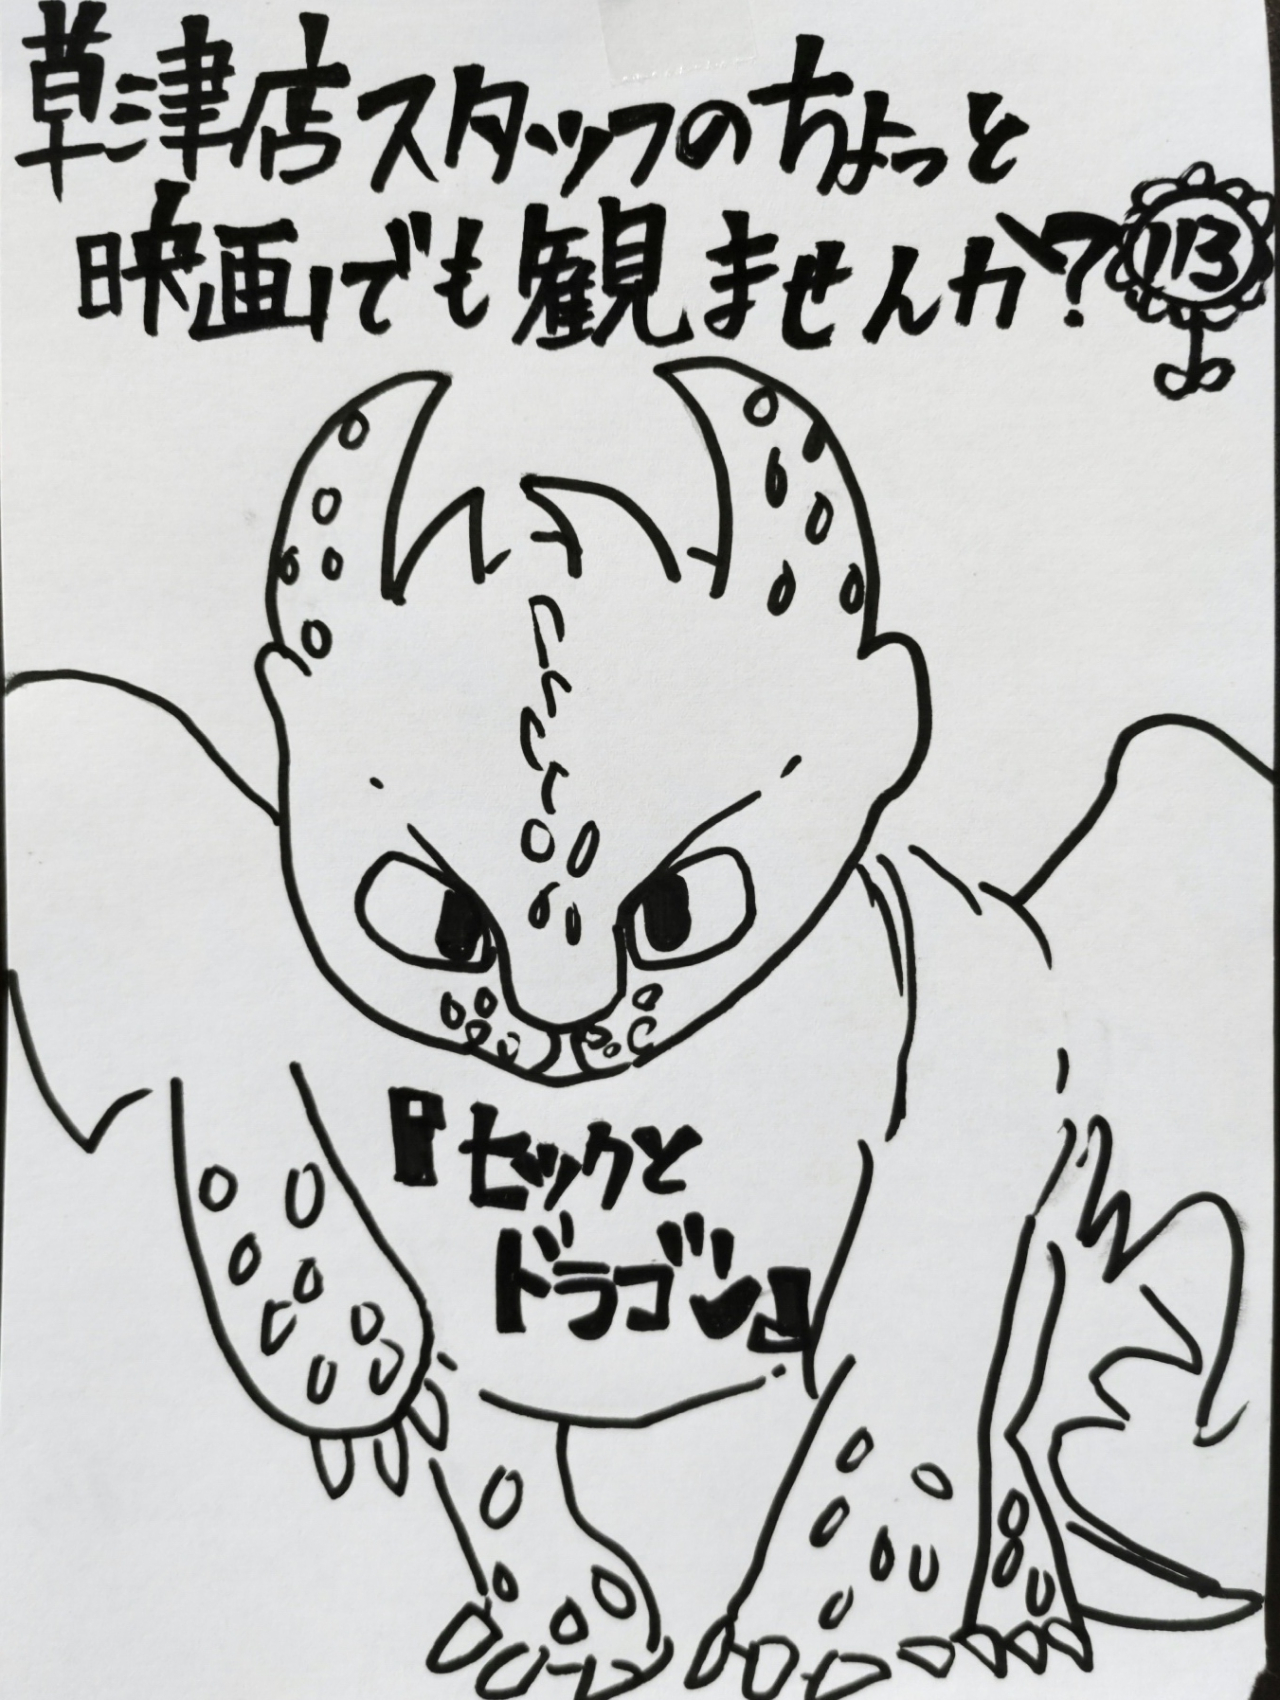 草津店スタッフのちょっと
映画でも観ませんか?
113
『ヒックと
ドラゴン』